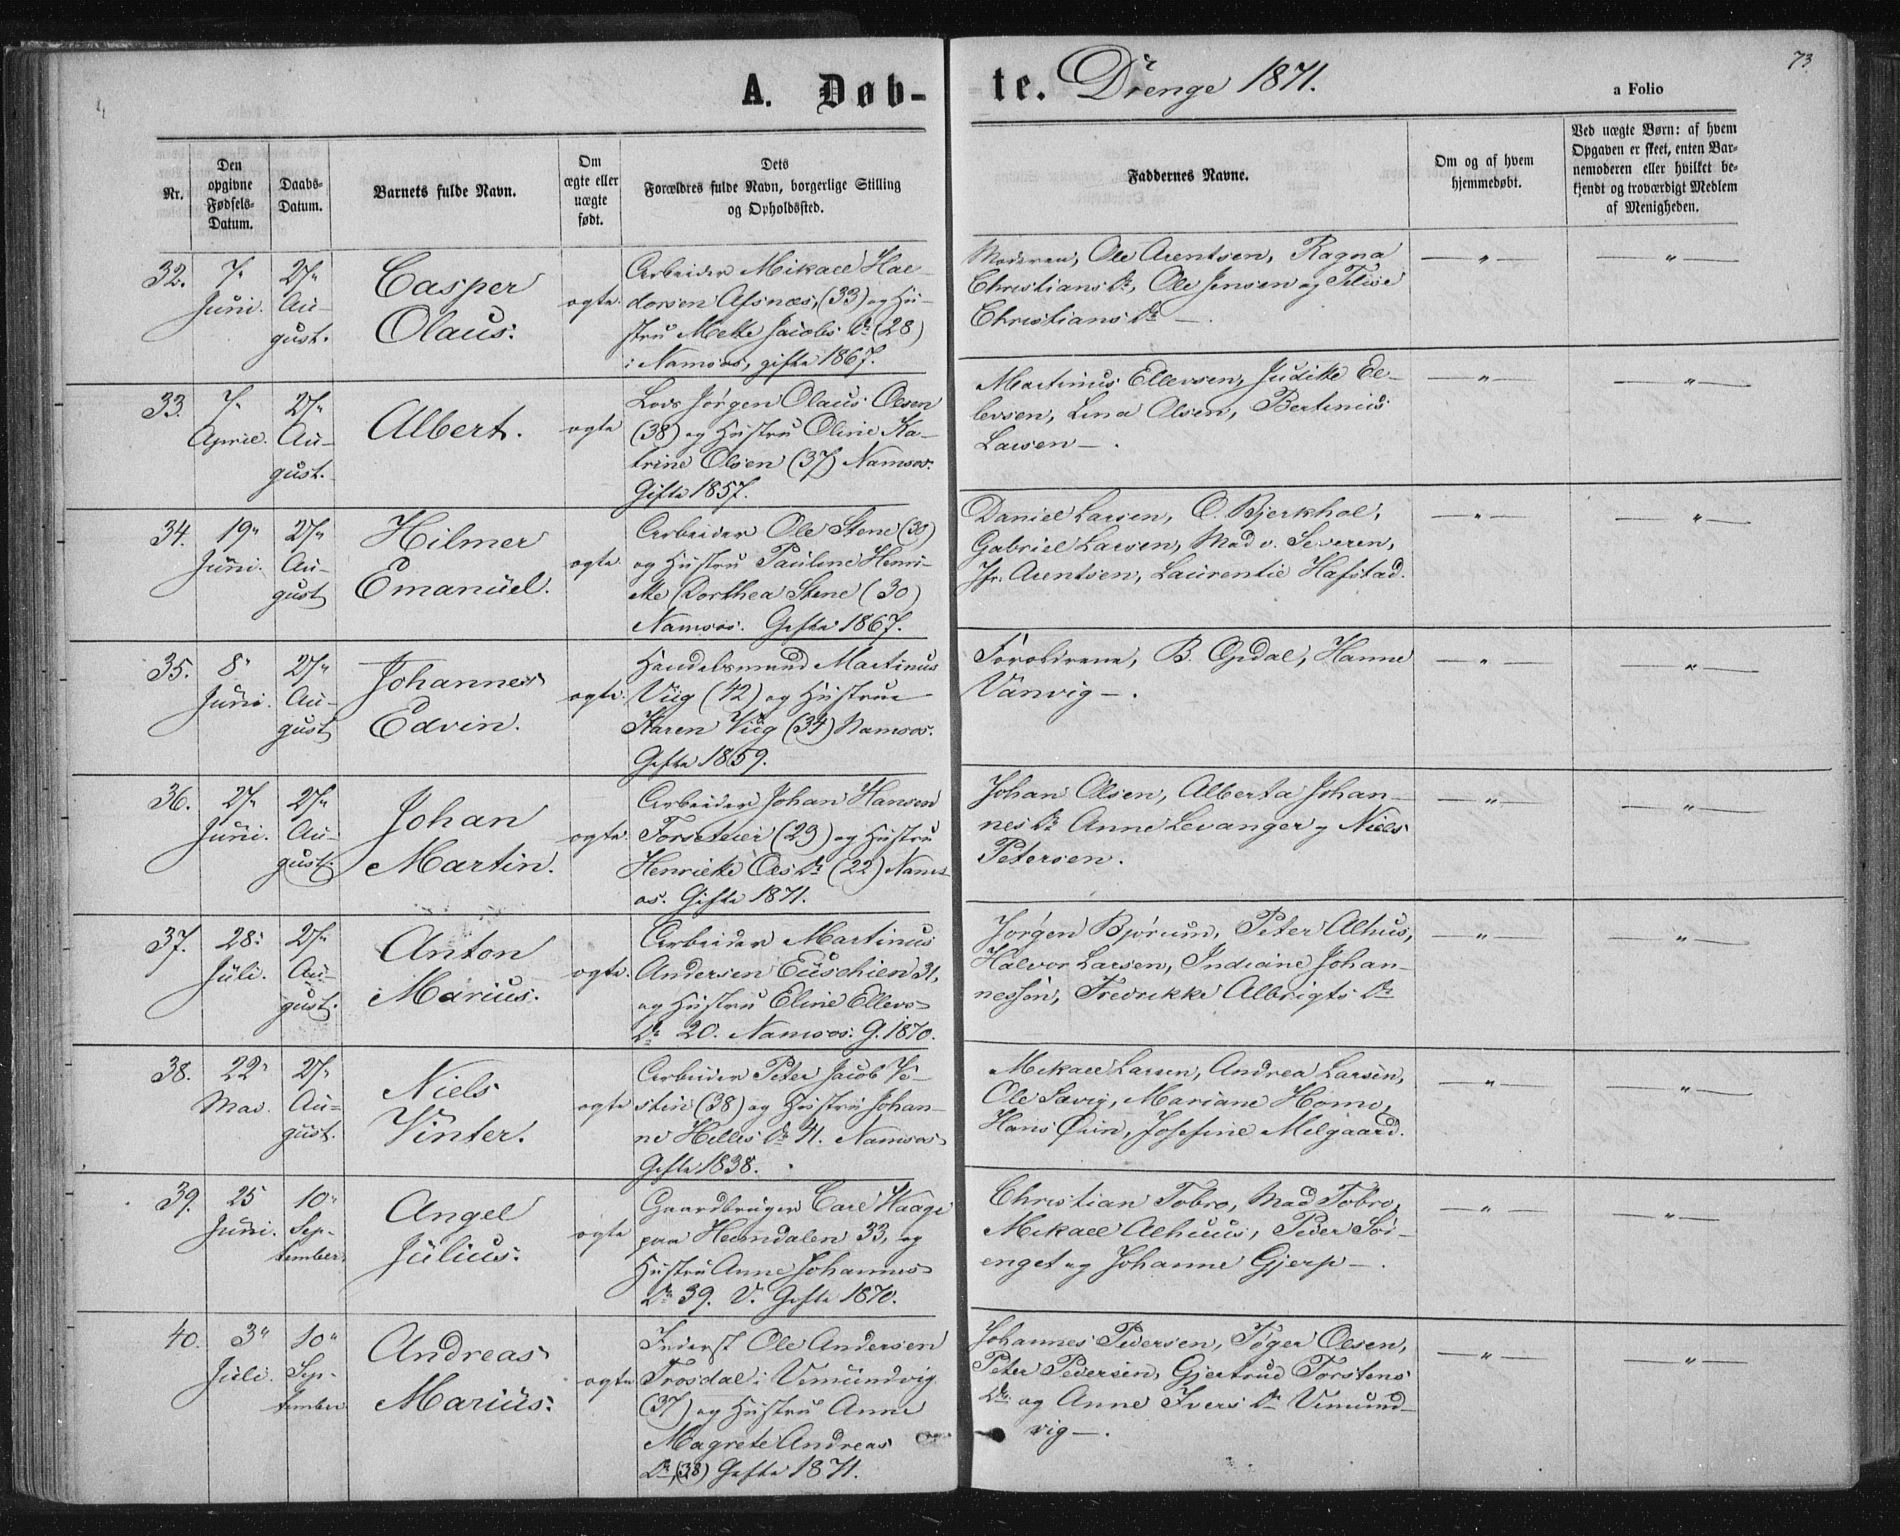 73.
A. Døb-
te. Drenge 1871.
a Folio
Nr.
Den
opgivne
Fødsels-
Datum.
Daabs-
Datum.
Barnets fulde Navn.
Om
ægte eller
uægte
født.
Dets
Forældres fulde Navn, borgerlige Stilling
og Opholdssted.
Faddernes Navne.
Om og af hvem
hjemmedøbt.
Ved uægte Børn: af hvem
Opgaven er skeet, enten Bar-
nemoderen eller hvilket be-
kjendt og troværdigt Medlem
af Menigheden.
32.
7.
Juni.
27.
Au-
gust.
Casper
Olaus.
ægte.
Arbeider Mikael Hal-
dorsen Afsnæs, (33) og Hu-
stru Mette Jacobs Dr (28)
i Namsos, gifte 1867.
Moderen, Ole Arentsen, Ragna
Christians Dr, Ole Jensen og
Christians Dr —.
— " —
— " —
33.
7.
April.
27.
Au-
gust.
Albert.
ægte
Lods Jørgen Olaus Olsen
(38) og Hustru Oline Ka-
trine Olsen (37) Namsos.
Gifte 1857.
Martinus Ellevsen, Judithe El-
levsen, Lina Olsen, Bertinius
Larsen —.
— " —
— " —
34.
19.
Juni.
27.
Au-
gust
Hilmer
Emanuel.
ægte
Arbeider Ole Stene (30)
og Hustru Pauline Henri-
ette Dorthea Stene (30)
Namsos. Gifte 1867.
Daniel Larsen, O. Bjerkhol,
Gabriel Larsen, Mad v. Severen,
Jfr. Arentsen, Laurentie Hafstad.
— " —
— " —
35.
8.
Juni.
27.
Au-
gust
Johannes
Edvin.
ægte.
Handelsmand Martinus
Viig (42) og Hustrue
Karen Viig (34) Namsos.
Gifte 1859.
Forældrene, B. Opdal, Hanne
Vanvig —.
— " —
— " —
36.
27.
Juni.
27.
Au-
gust.
Johan
Martin.
ægte.
Arbeider Johan Hansen
(23) og Hustru
Henriette Ols Dr (22) Nams-
os. Gifte 1871.
Johan Olsen, Alberta Johan-
nes Dr Anne Levanger og Niels
Petersen.
— " —
— " —
37.
28.
Juli.
27.
Au-
gust.
Anton
Marius.
ægte.
Arbeider Martinus
Andersen 31,
og Hustru Eline Ellevs
Dr 20. Namsos. G. 1870.
Jørgen Bjørum, Peter Alhus,
Halvor Larsen, Indiane Johan-
nessen, Fredrikke Albrigts Dr
— " —
— " —
38.
22.
Mai.
27.
Au-
gust.
Niels
Vinter.
ægte
Arbeider Peter Jacob Ve-
stin (38) og Hustru Johan-
ne Hellis Dr 41. Namsos
Gifte 1838.
Mikael Larsen, Andrea Larsen,
Ole Sævig, Mariane Homo,
Hans Qvin, Josefine Melgaard.
— " —
— " —
39.
25
Juni.
10.
Sep-
tember
Angel
Julius.
ægte
Gaardbruger Carl Haagi
paa Heimdalen 33, og
Hustru Anne Johannes
Dr 39. V. Gifte 1870.
Christian Tobro, Mad Tobro,
Mikael Alhuus, Peder Sør-
enget og Johanne Gjerp —.
— " —
— " —
40.
3.
Juli.
10.
Sep-
tember
Andreas
Marius.
ægte
Inderst Ole Andersen
Trosdal i Vemundvig
(37) og Hustru Anne
Magrete Andreas
Dr (38) Gifte 1871.
Johannes Pedersen, Tøger Olsen,
Peter Pedersen, Gjertrud Torstens
Dr. og Anne Ivers Dr Vemund-
vig —.
— " —
— " —